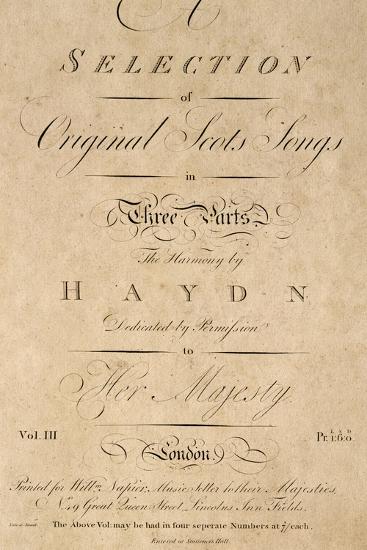 A
SELECTION
of
Original Scots Songs
in
Three Parts.
The Harmony by
HAYDN
Dedicated by Permission
to
Her Majesty
Vol. III
Pr. 1:6:0
London.
Printed for Willm. Napier, Music Seller to their Majesties,
No. 9 Great Queen Street, Lincolns Inn Fields.
The Above Vol: may be had in four seperate Numbers at 7/ each.
Entered at Stationers Hall.